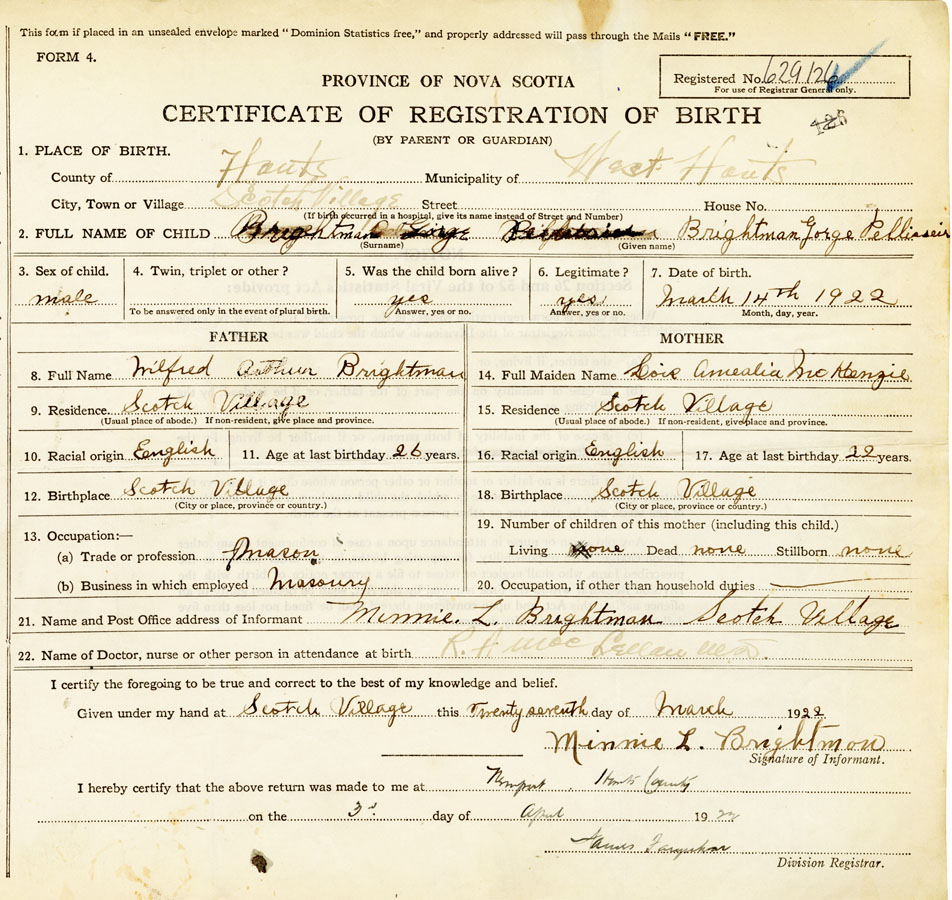 This form if placed in an unsealed envelope marked "Dominion Statistics free," and properly addressed will pass through the Mails "FREE."
FORM 4.
Registered No. 629126
For use of Registrar General only.
PROVINCE OF NOVA SCOTIA
CERTIFICATE OF REGISTRATION OF BIRTH
126
(BY PARENT OR GUARDIAN)
1. PLACE OF BIRTH.
County of Hants Municipality of West Hants
City, Town or Village Scotch Village Street House No.
(If birth occurred in a hospital, give its name instead of Street and Number)
2. FULL NAME OF CHILD Brightman Gorge Brightman Gorge Pellissier
(Surname) (Given name)
3. Sex of child. 4. Twin, triplet or other? 5. Was the child born alive? 6. Legitimate? 7. Date of birth.
male yes yes March 14th 1922
To be answered only in the event of plural birth. Answer, yes or no. Answer, yes or no. Month, day, year.
FATHER MOTHER
8. Full Name Wilfred Arthur Brightman 14. Full Maiden Name Lois Amealia McKenzie
9. Residence. Scotch Village 15. Residence Scotch Village
(Usual place of abode.) If non-resident, give place and province. (Usual place of abode.) If non-resident, give place and province.
10. Racial origin English 11. Age at last birthday 26 years. 16. Racial origin English 17. Age at last birthday 22 years.
12. Birthplace Scotch Village 18. Birthplace Scotch Village
(City or place, province or country.) (City or place, province or country.)
13. Occupation:— 19. Number of children of this mother (including this child.)
(a) Trade or profession Mason Living none Dead none Stillborn none
(b) Business in which employed Masonry 20. Occupation, if other than household duties
21. Name and Post Office address of Informant Minnie. L. Brightman Scotch Village
22. Name of Doctor, nurse or other person in attendance at birth R. A Mac Lellan M.D.
I certify the foregoing to be true and correct to the best of my knowledge and belief.
Given under my hand at Scotch Village this Twenty seventh day of March 1922
Minnie L. Brightman
Signature of Informant.
I hereby certify that the above return was made to me at Newport Hants County
on the 3d. day of April 1922
James Farquhar
Division Registrar.